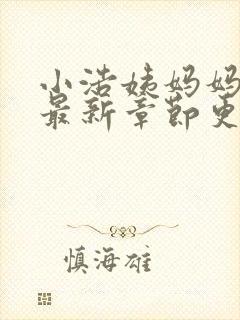 小浩姨妈妈
最新章节更
慎海雄